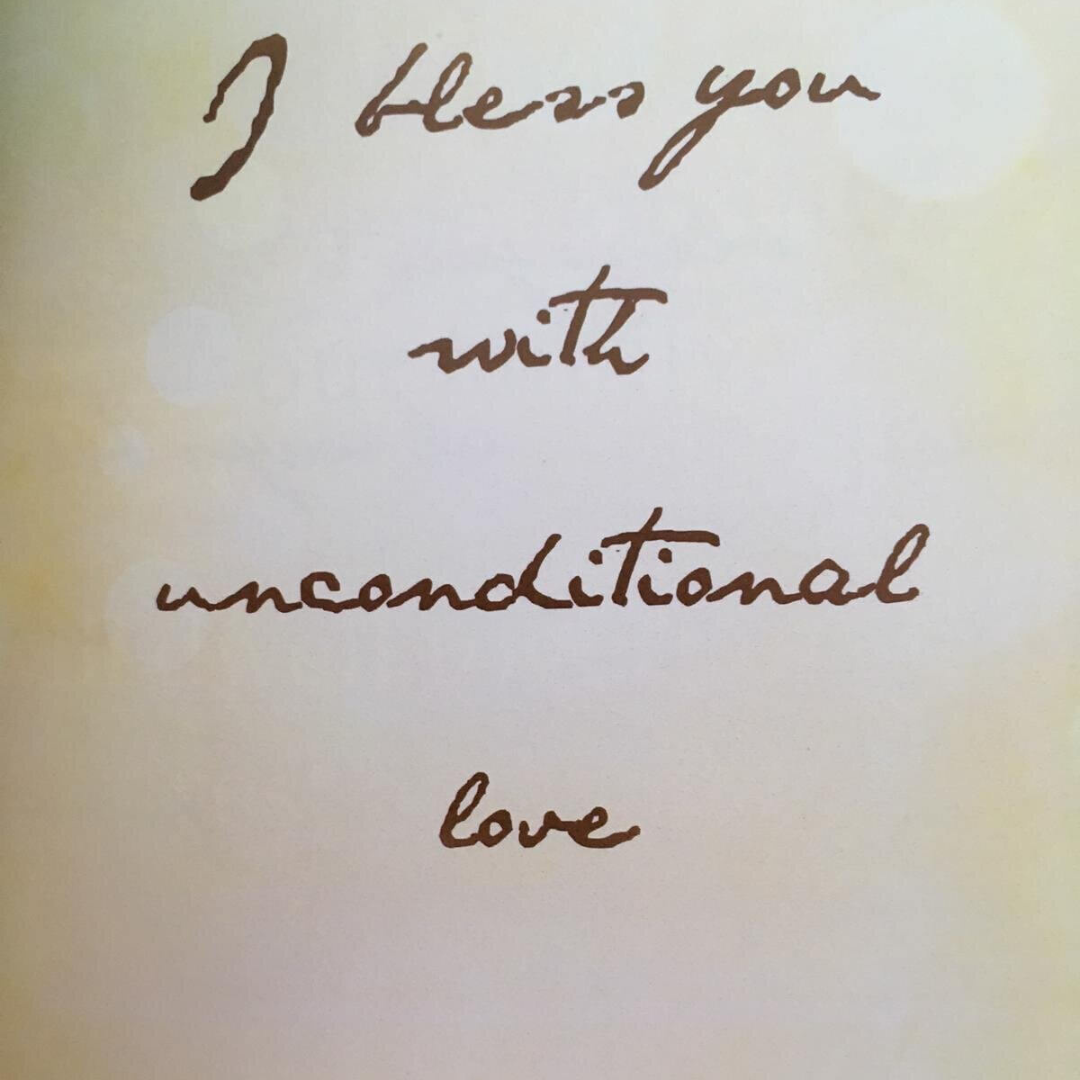 I bless you
with
unconditional
love